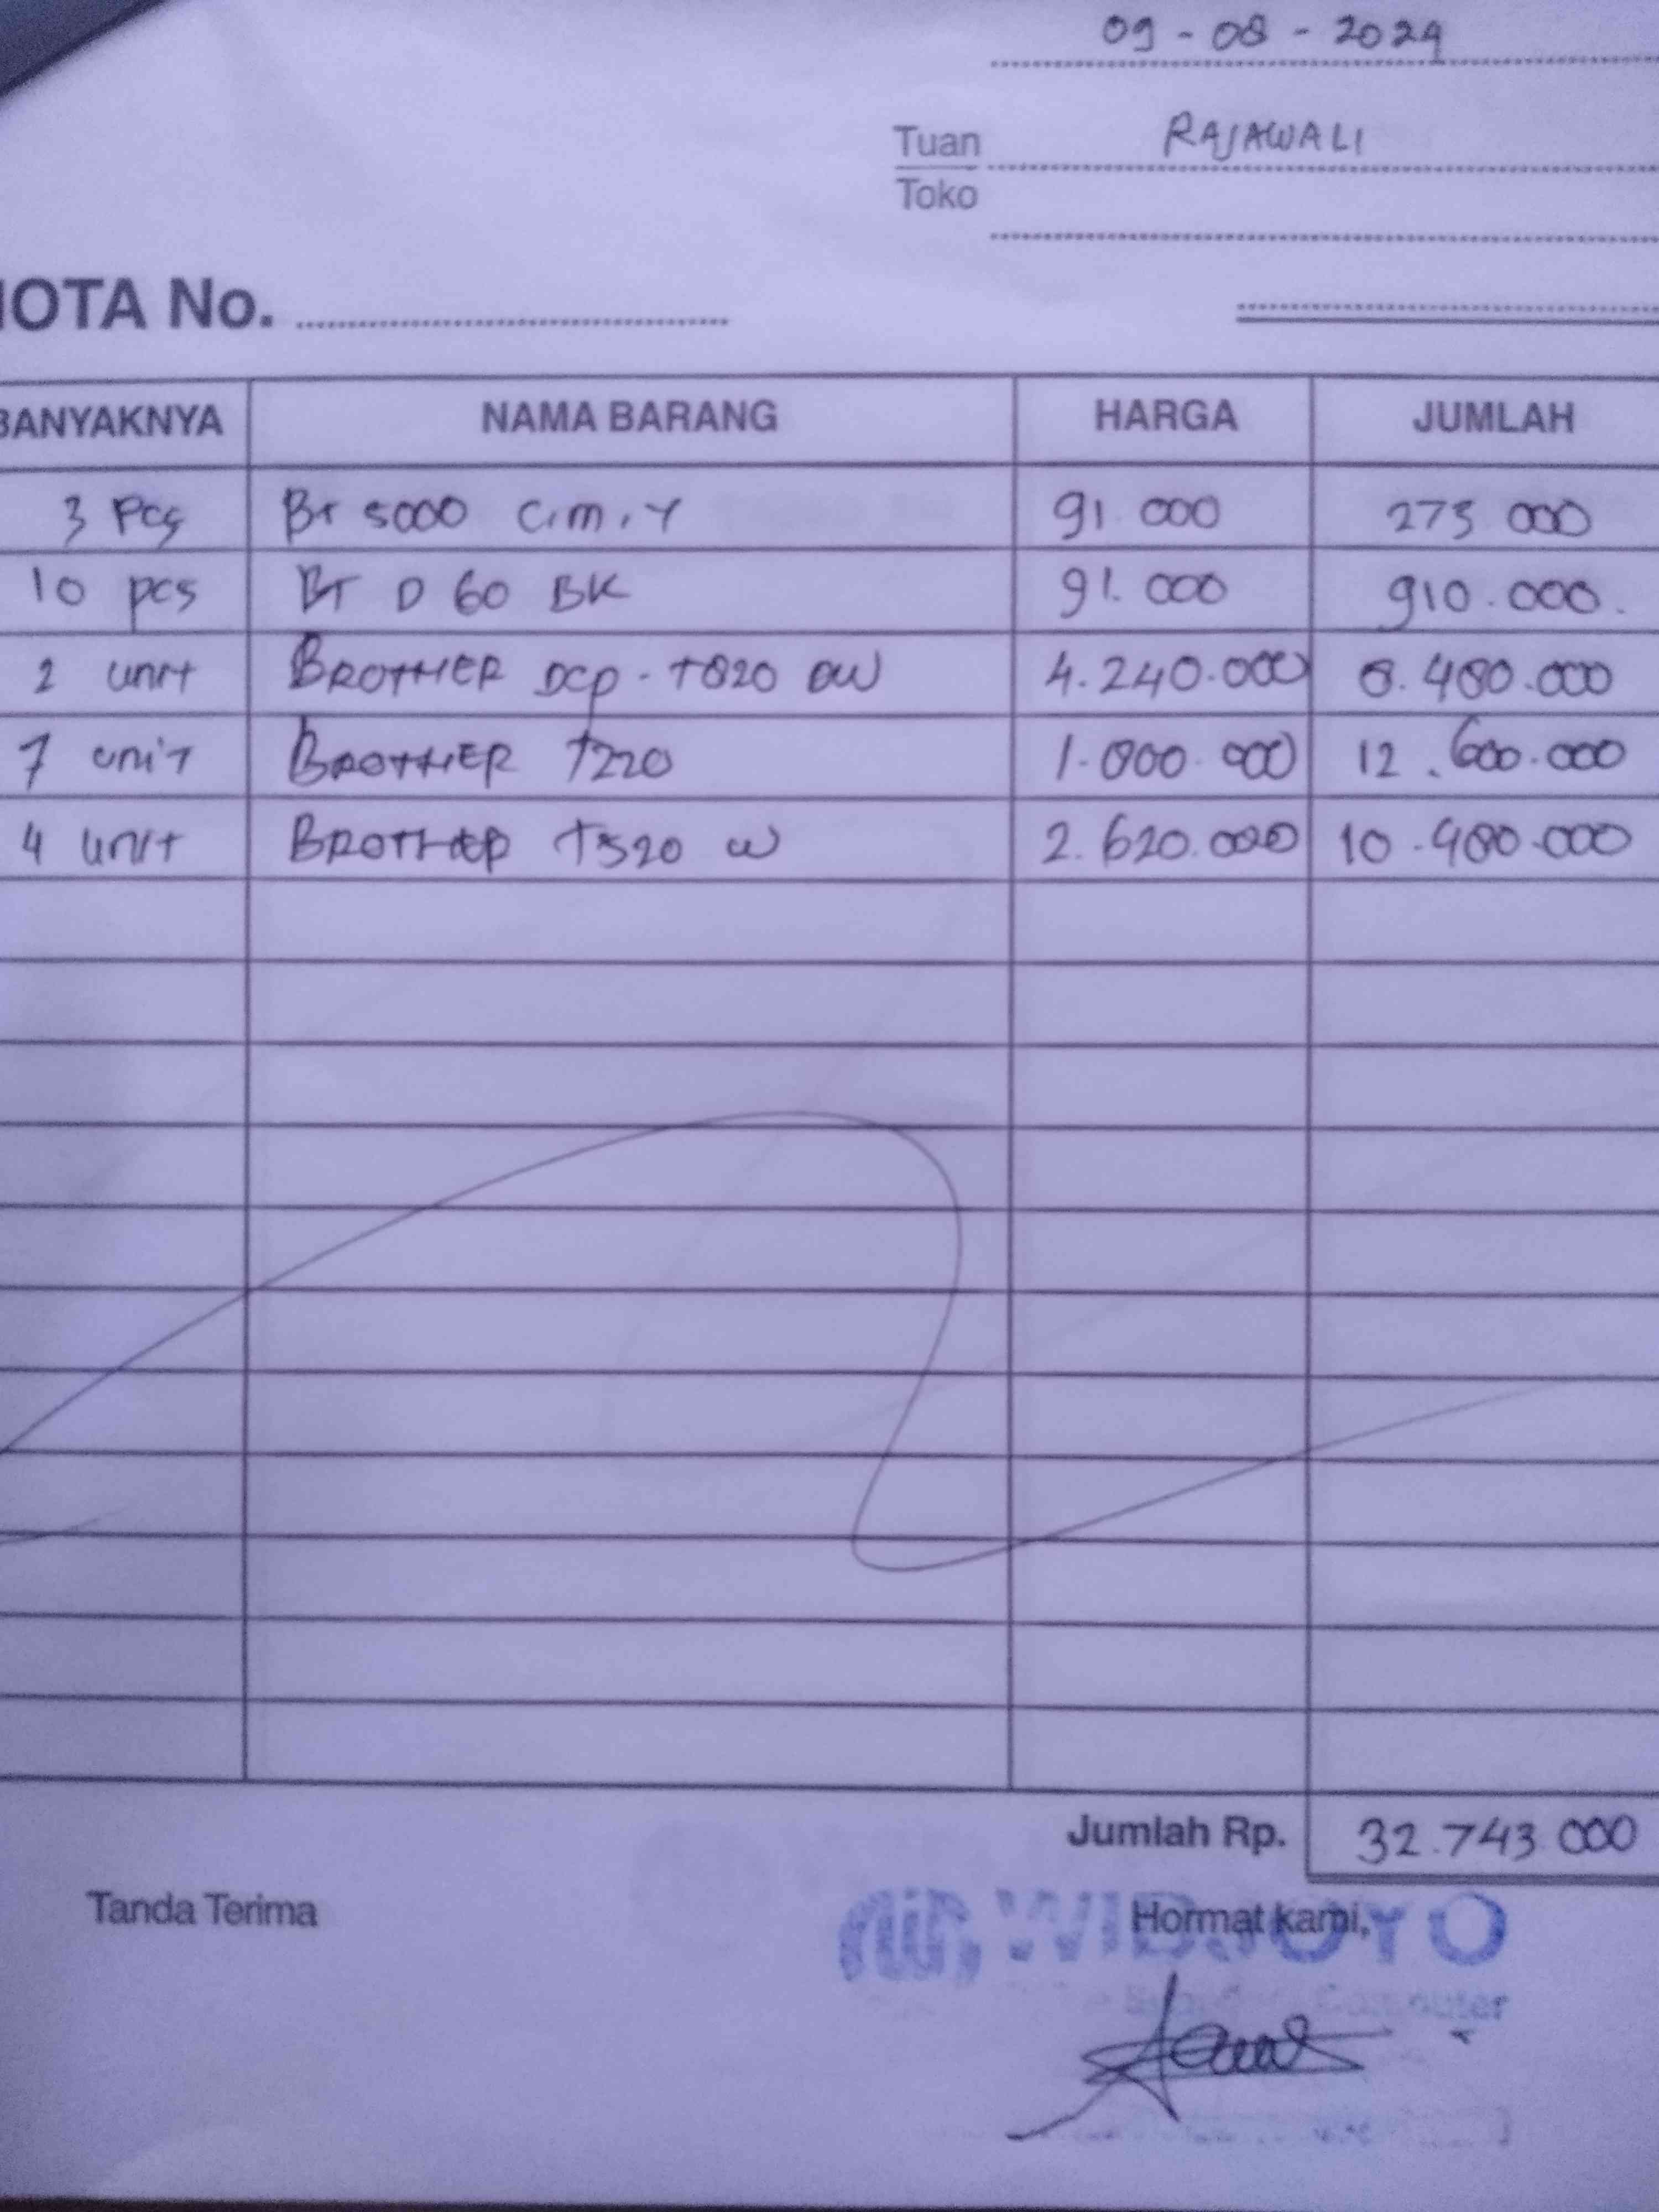 09-08-2024
Tuan RAJAWALI
Toko
NOTA No.
BANYAKNYA NAMA BARANG HARGA JUMLAH
3 Pcs BT 5000 C.M.Y 91.000 273 000
10 pcs BT D 60 BK 91.000 910.000.
2 unit BROTHER DCP-T820 DW 4.240.000 8.480.000
7 unit BROTHER T220 1.800.000 12.600.000
4 unit BROTHER T520 W 2.620.000 10.480.000
Jumlah Rp. 32.743.000
Tanda Terima Hormat kami,
WIDJOYO
Computer